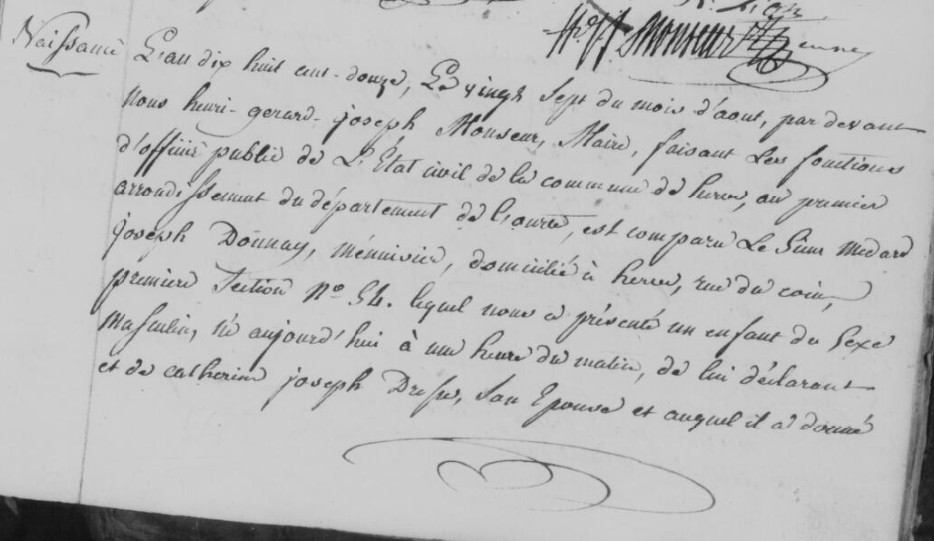 Monseur
Naissance
L'an dix huit cent-douze, Le vingt sept du mois d'aout, par devant
Nous henri-gerard-joseph Monseur, Maire, faisant Les fonctions
d'officié public de L'Etat civil de la commune de herve, au premier
arrondissement du département de l'ourte, est comparu Le Sieur medard
joseph Donnay, ménuisier, domicilié à herve, rue du coin,
premiere Section N° 54. lequel nous a présenté un enfant du Sexe
Masculin, né aujourd'hui à une heure du matin, de lui déclarant
et de catherine joseph Son Epouse et auquel il a donné